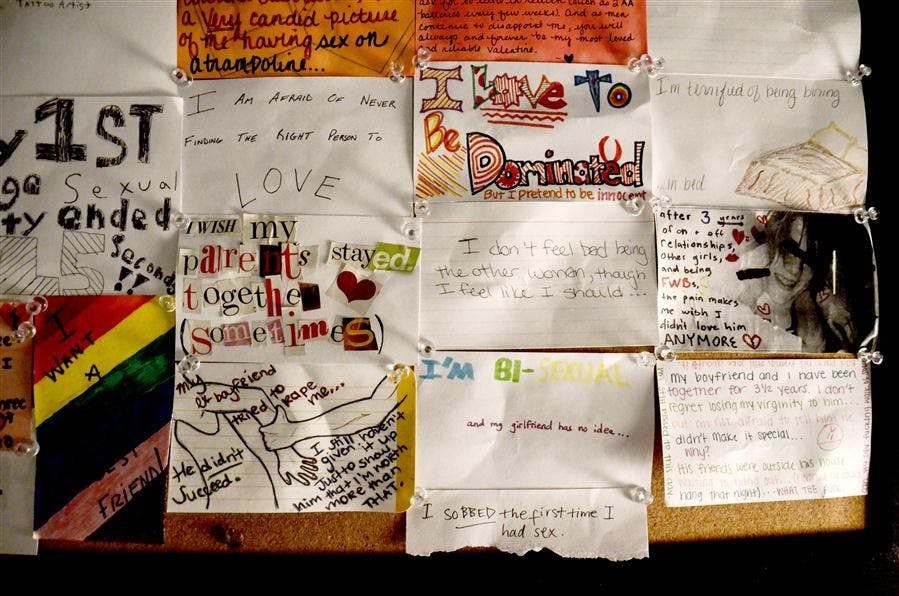 Tattoo Artist
a Very candid picture
of me having sex on
A trampoline...
batteries every few weeks) And as men
continue to disappoint me, you will
always and forever be my most loved
and reliable valentine.
1ST
Sexual
ended
Seconds
!!
I AM AFRAID OF NEVER
FINDING THE RIGHT PERSON TO
LOVE
I Love To
Be
Dominated
But I pretend to be innocent
I'm terrified of being boring
...in bed
I WISH my
parents stayed
together
(sometimes)
I don't feel bad being
the other woman, though
I feel like I should...
after 3 years
of on + off
relationships,
other girls,
and being
FWBs,
the pain makes
me wish I
didn't love him
ANYMORE
I
WANT
A
FRIEND
my
boyfriend
tried to
rape
me...
He didn't
Succeed.
I still haven't
given it up
just to show
him that I'm worth
more than
THAT.
I'M BI-SEXUAL
and my girlfriend has no idea...
I SOBBED the first time I
had sex.
my boyfriend and I have been
together for 3½ years. I don't
regret losing my virginity to him...
didn't make it special...
why?
His friends were outside his house
waiting to hang out...
hang that night)... WHAT THE